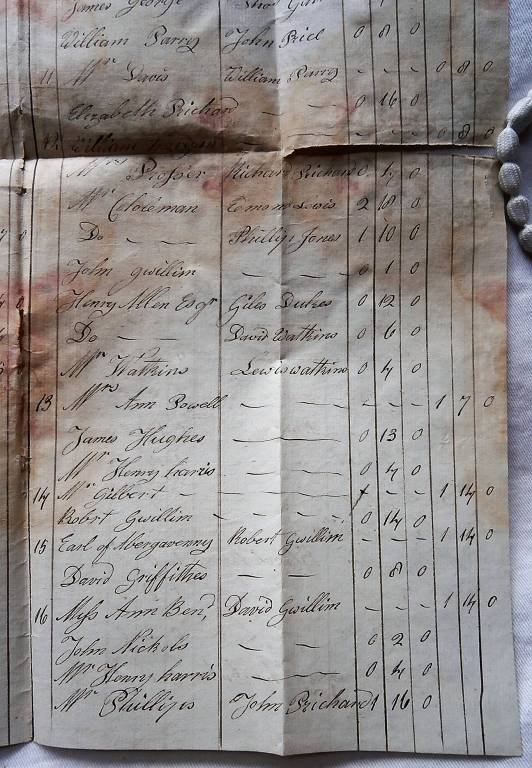 James George
William Parry John Price 0 8 0
11 Mr Davis William Parry - - - 0 8 0
Elizabeth Prichard - - 0 16 0
12 William - - - 0 8 0
Prosser Richard Prichard 0 17 0
Mr Coleman Edmond Lewis 2 18 0
Do - - Phillip Jones 1 10 0
John Gwillim - - 0 1 0
Henry Allen Esqr Giles Dukes 0 12 0
Do - - David Watkins 0 6 0
Mr Watkins Lewis watkins 0 4 0
13 Mrs Ann Powell - - - - - 1 7 0
James Hughes 0 13 0
Mr Henry harris - - 0 4 0
14 Mr Gilbert - - - - - - 1 14 0
Robert Gwillim - - - - 0 14 0
15 Earl of Abergavenny Robert Gwillim - - - 1 14 0
David Griffithes - - 0 8 0
16 Miss Ann Bend, David Gwillim - - - 1 14 0
John Nichols - - 0 2 0
Mr Henry harris - - 0 4 0
Mr Phillips John Prichard 1 16 0